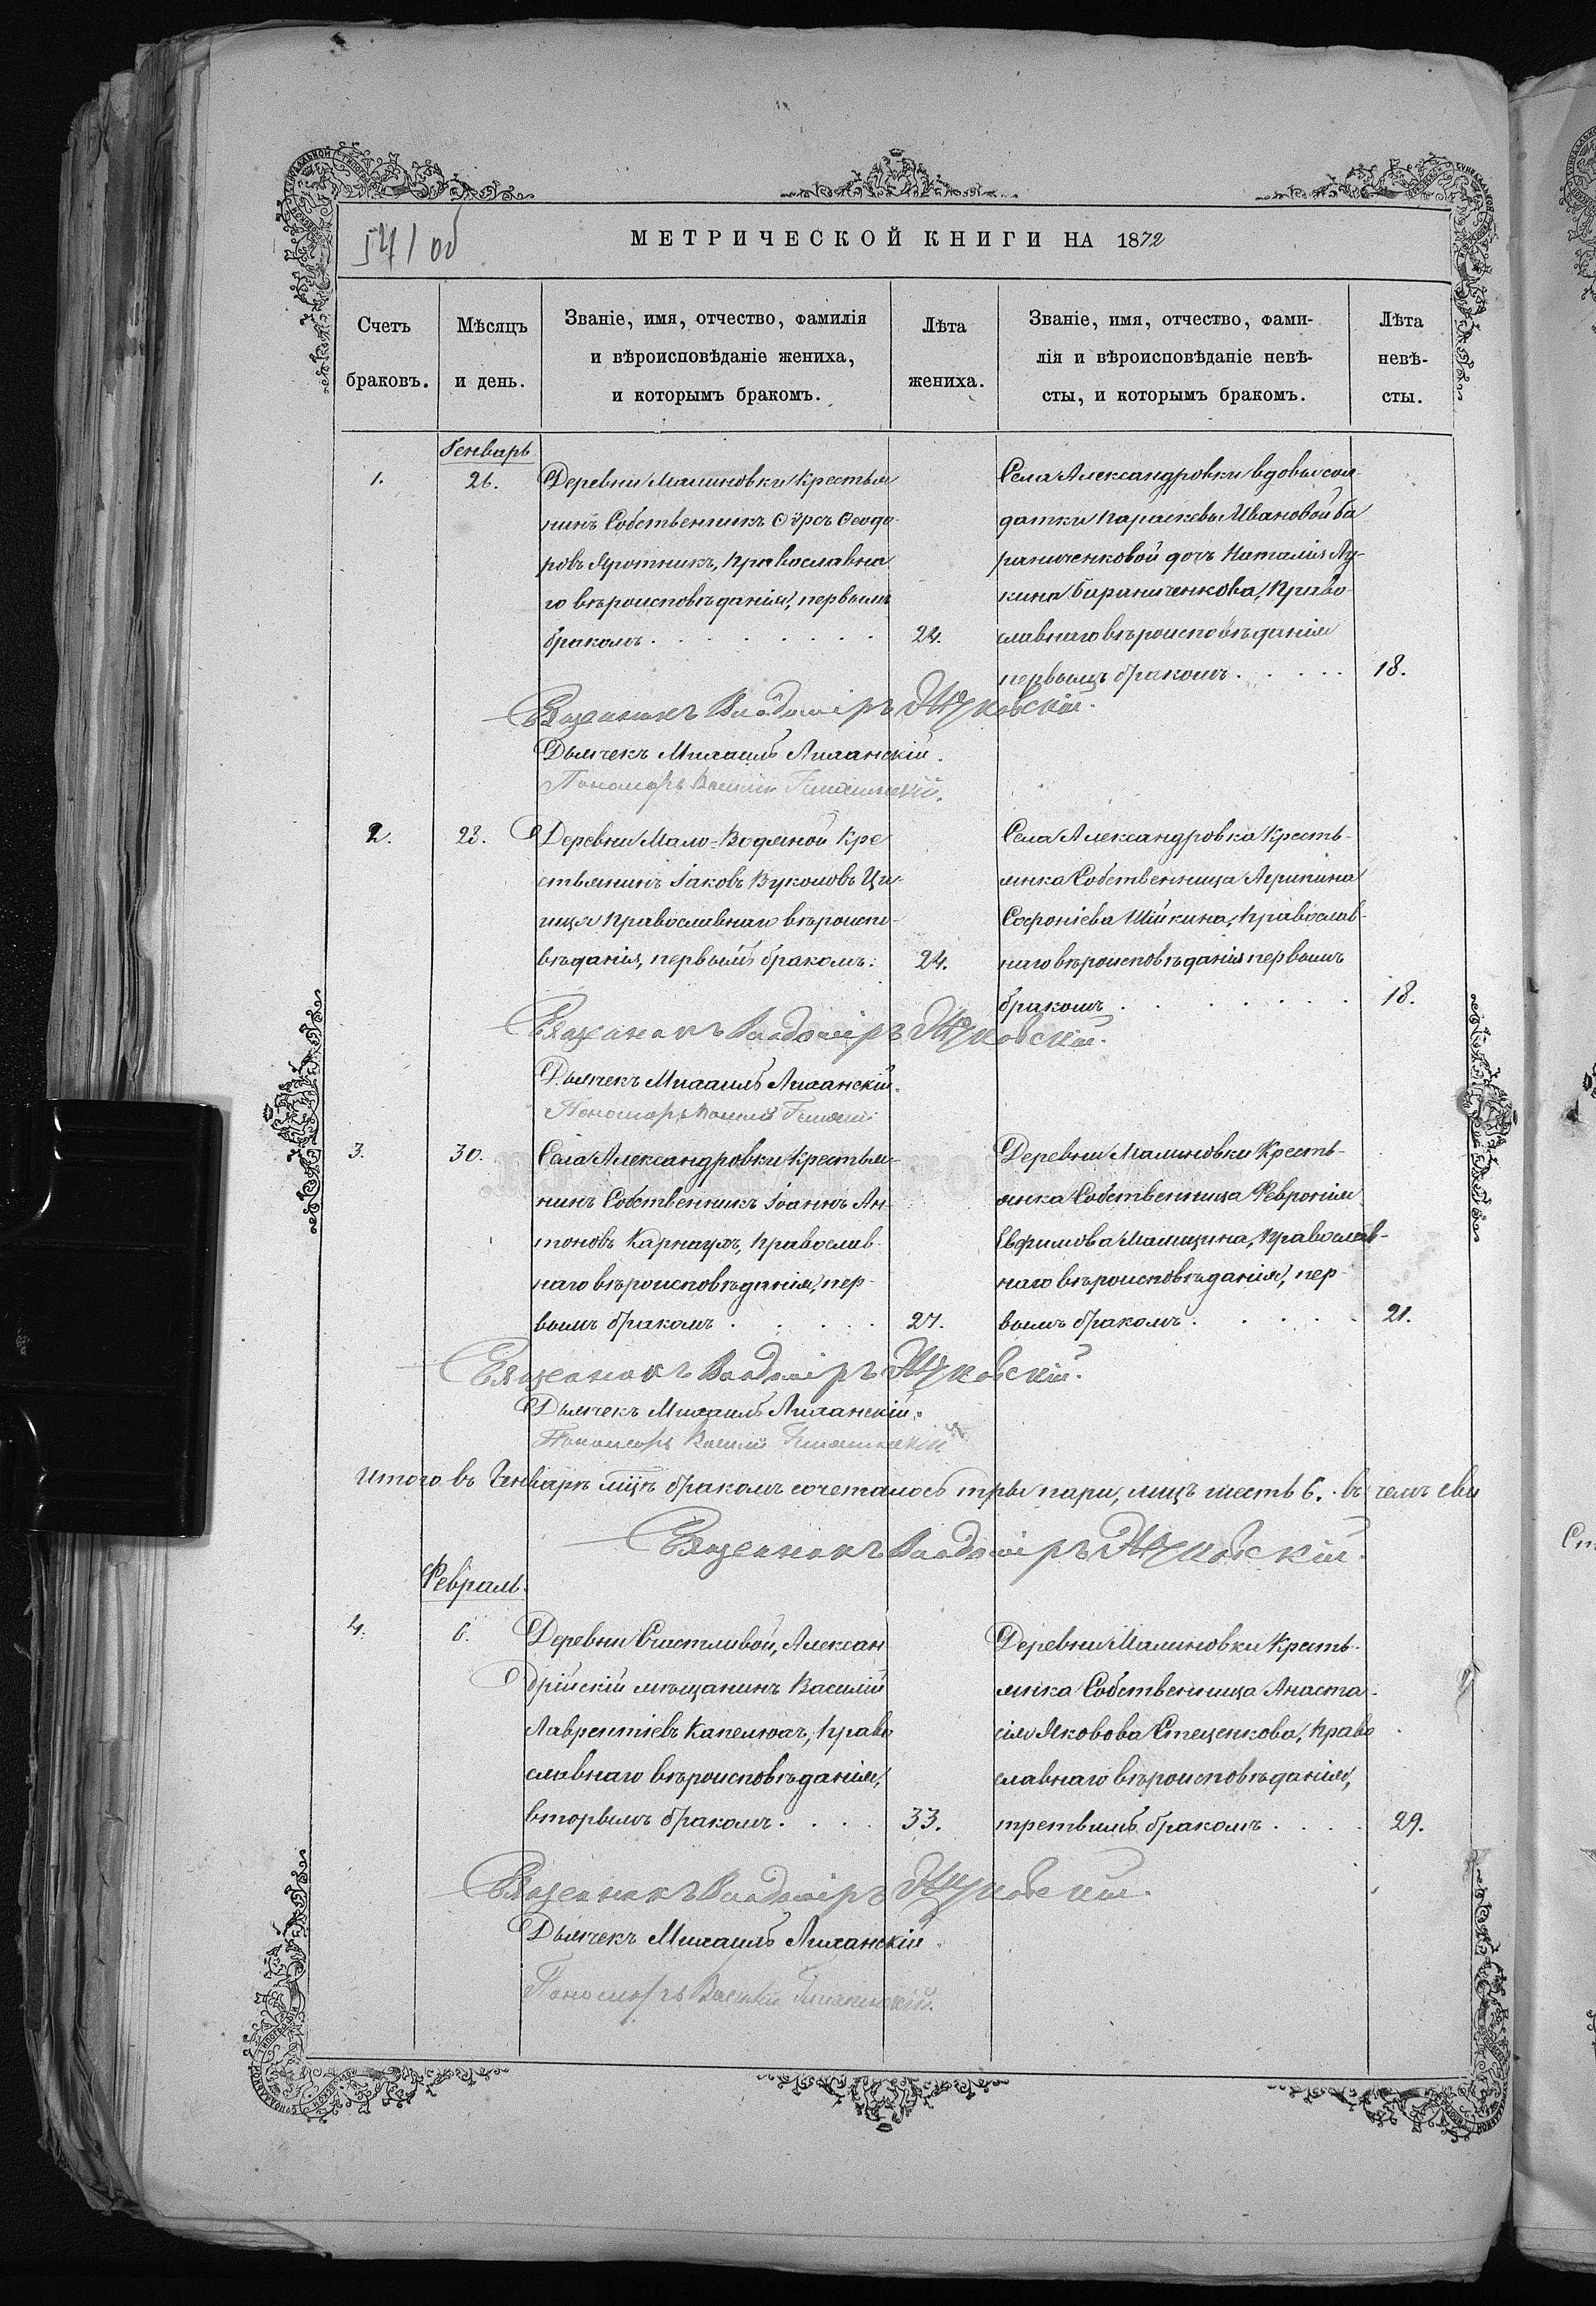 571 об
МЕТРИЧЕСКОЙ КНИГИ НА 1872
Счетъ браковъ.
Мѣсяцъ и день.
Званіе, имя, отчество, фамилія
и вѣроисповѣданіе жениха,
и которымъ бракомъ.
Лѣта жениха.
Званіе, имя, отчество, фами-
лія и вѣроисповѣданіе невѣ-
сты, и которымъ бракомъ.
Лѣта невѣ-
сты.
Генварь
1.
26.
Деревни Малиновки Крестья
нинъ Собственникъ Ѳѵрсъ Ѳеодо
ровъ Яротникъ, православна
го вѣроисповѣданія, первымъ
бракомъ
24.
Села Александровки вдовы сол
датки Параскевы Ивановой Ба
раниченковой дочь Наталія Лу-
кина Бараниченкова, Право
славнаго вѣроисповѣданія
первымъ бракомъ
18.
Священникъ Владиміръ Жуковскій.
Дьячекъ Михаилъ Лиханскій.
Пономарь Василій
2.
23.
Деревни Мало-Водяной Кре
стьянинъ Іаковъ Вуколовъ
Православнаго вѣроиспо-
вѣданія, первымъ бракомъ.
24.
Села Александровка Кресть-
янка Собственница Агрипина
Софроніева Шійкина, Православ-
наго вѣроисповѣданія первымъ
бракомъ
18.
Священникъ Владиміръ Жуковскій.
Дьячекъ Михаилъ Лиханскій.
Пономарь Василій
3.
30.
Села Александровки Крестья-
нинъ Собственникъ Іоаннъ Ан-
тоновъ Карнаухъ, Православ-
наго вѣроисповѣданія, пер-
вымъ бракомъ
27.
Деревни Малиновки Кресть-
янка Собственница Февронія
Евфимова Малицина, Православ-
наго вѣроисповѣданія, пер-
вымъ бракомъ
21.
Священникъ Владиміръ Жуковскій.
Дьячекъ Михаилъ Лиханскій.
Пономарь Василій
Итого въ Генварѣ мцѣ бракомъ сочеталось три пари, лицъ шесть 6. въ чемъ сви
Священникъ Владиміръ Жуковскій.
Февраль.
4.
6.
Деревни Счастливой, Алексан
дрійскій мѣщанинъ Василій
Лаврентіевъ Капелюхъ, Право
славнаго вѣроисповѣданія,
вторымъ бракомъ
33.
Деревни Малиновки Кресть-
янка Собственница Анаста-
сія Яковова Стеценкова, Право
славнаго вѣроисповѣданія,
третьимъ бракомъ
29.
Священникъ Владиміръ Жуковскій.
Дьячекъ Михаилъ Лиханскій.
Пономарь Василій